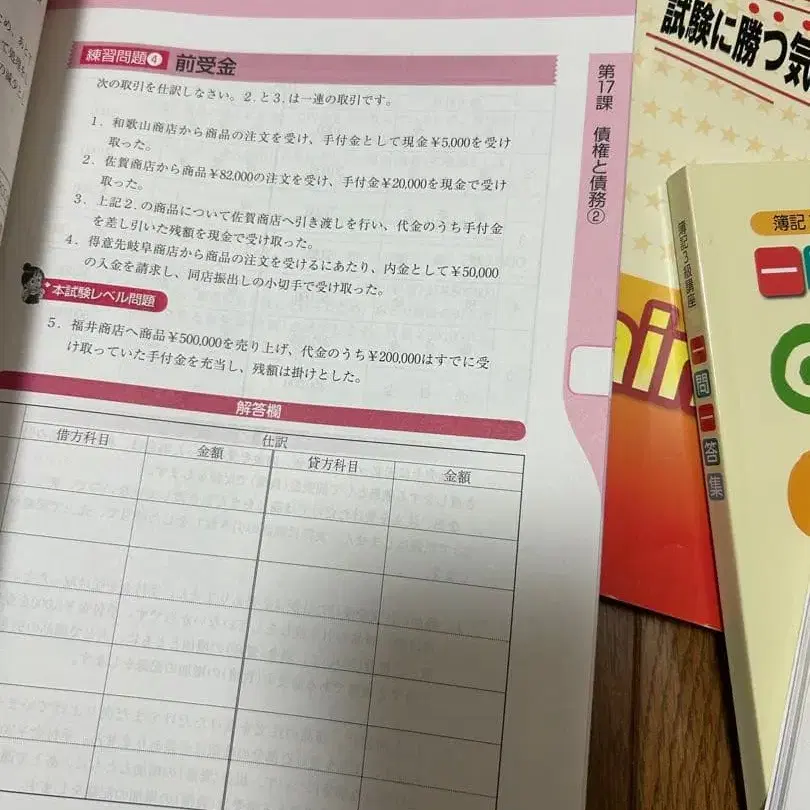 練習問題④ 前受金
次の取引を仕訳しなさい。2.と3.は一連の取引です。
1. 和歌山商店から商品の注文を受け、手付金として現金¥5,000を受け
取った。
2. 佐賀商店から商品¥82,000の注文を受け、手付金¥20,000を現金で受け
取った。
3. 上記2.の商品について佐賀商店へ引き渡しを行い、代金のうち手付金
を差し引いた残額を現金で受け取った。
4. 得意先岐阜商店から商品の注文を受けるにあたり、内金として¥50,000
の入金を請求し、同店振出しの小切手で受け取った。
本試験レベル問題
5. 福井商店へ商品¥500,000を売り上げ、代金のうち¥200,000はすでに受
け取っていた手付金を充当し、残額は掛けとした。
解答欄
仕訳
借方科目 金額 貸方科目 金額
第17課 債権と債務②
試験に勝つ気
簿記3級講座 一問一答集
簿記
一